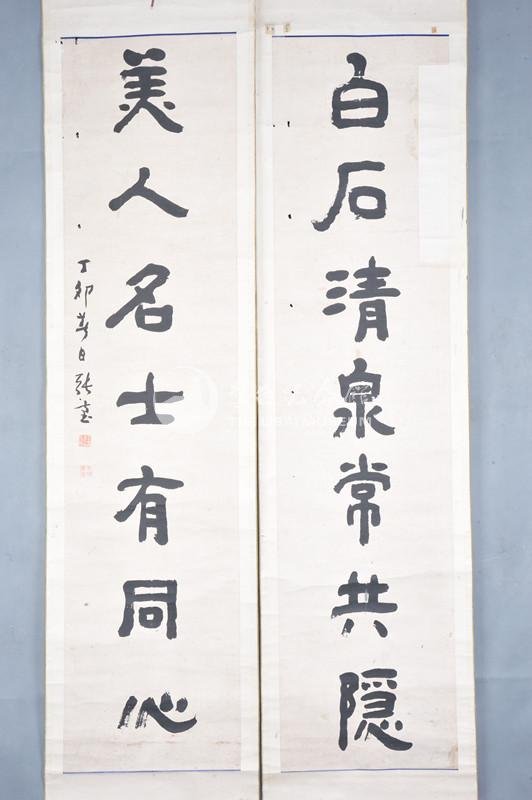 白石清泉常共隐
美人名士有同心
丁卯春日
THE LIBAI MUSEUM